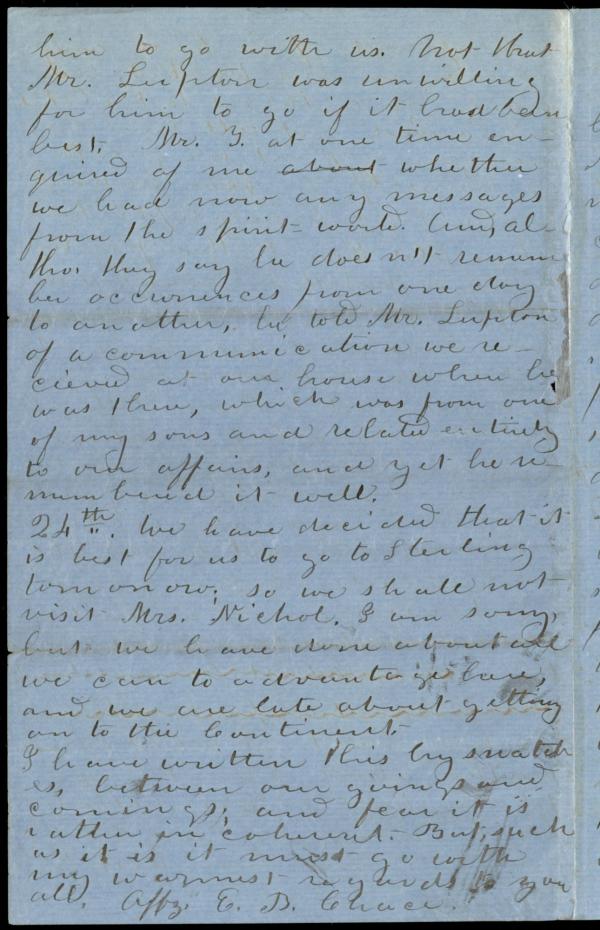 him to go with us. Not that
Mr. Lupton was unwilling
for him to go if it had been
best. Mr. T. at one time en-
quired of me about whether
we had now any messages
from the spirit-world. And, al-
tho. they say he doesn't remem
ber occurrences from one day
to another, he told Mr. Lupton
of a communication we re-
cieved at our house when he
was there, which was from one
of my sons and related entirely
to our affairs, and yet he re-
membered it well.
24th. We have decided that it
is best for us to go to Sterling
tomorrow, so we shall not
visit Mrs. Nichol. I am sorry,
but we have done about all
we can to advantage here,
and we are late about getting
on to the Continent.
I have written this by snatch
es, between our goings and
comings, and fear it is
rather incoherent. But, such
as it is it must go with
my warmest regards to you
all. Affy. E. B. Chace.